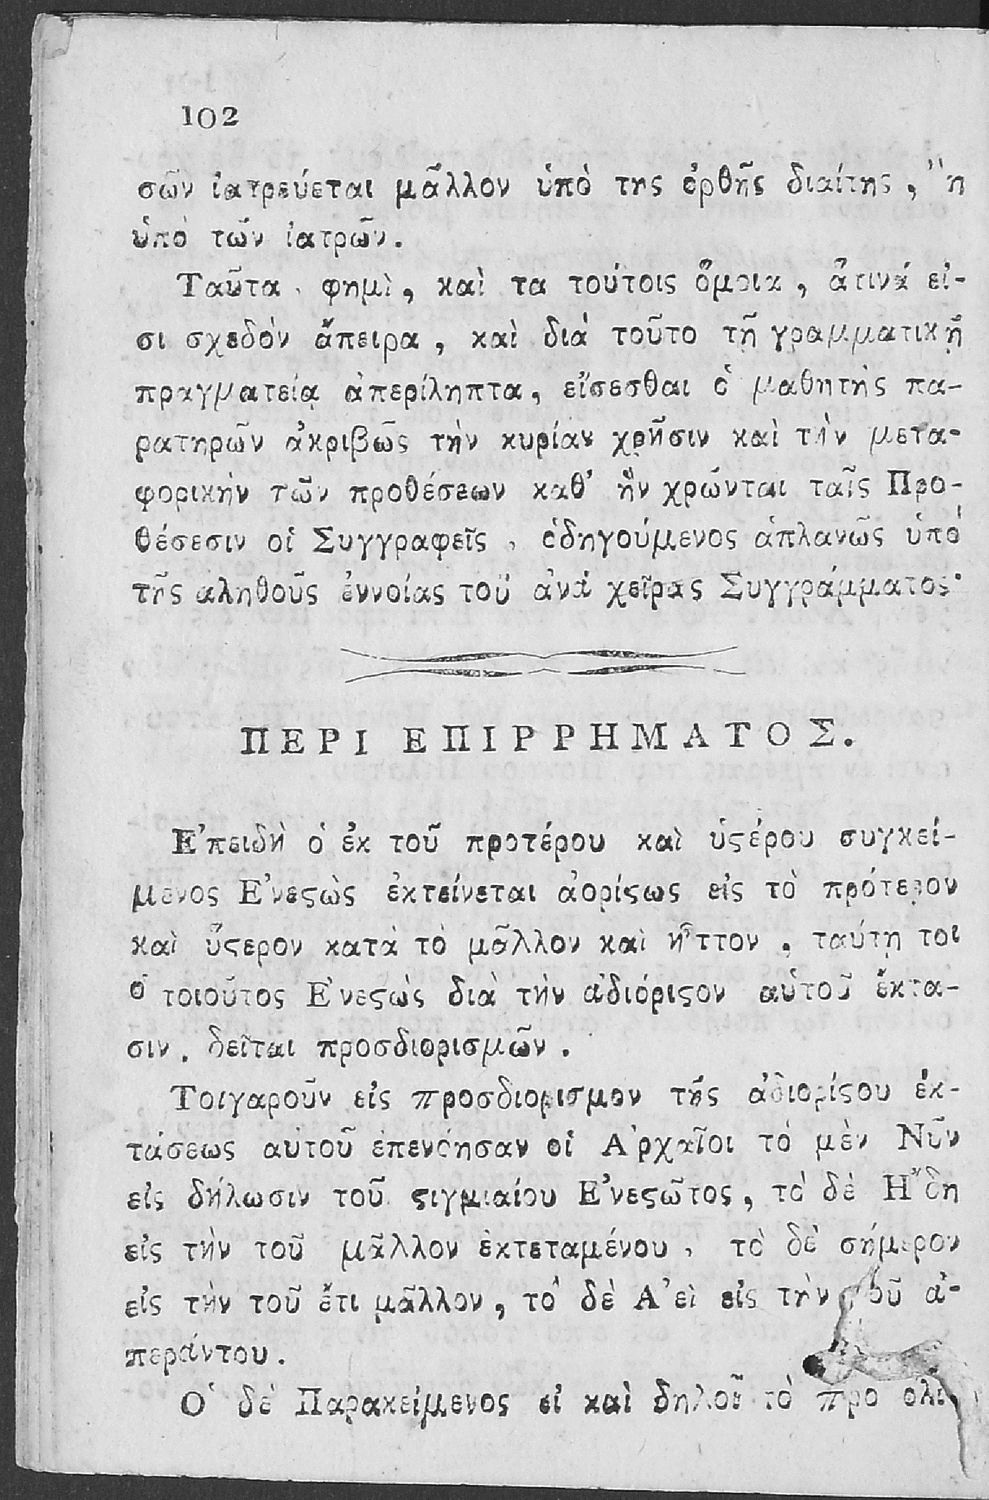 102
σῶν ἰατρεύεται μᾶλλον ὑπὸ της ὀρθῆς διαίτης, ἢ
ὑπὸ τῶν ἰατρῶν.
Ταῦτα φημὶ, καὶ τα τούτοις ὅμοια, ἅτινά εἰ-
σι σχεδὸν ἄπειρα, καὶ διὰ τοῦτο τῇ γραμματικῇ
πραγματείᾳ ἀπερίληπτα, εἴσεσθαι ὁ μαθητὴς πα-
ρατηρῶν ἀκριβῶς τὴν κυρίαν χρῆσιν καὶ τὴν μετα-
φορικὴν τῶν προθέσεων καθ’ ἣν χρῶνται ταῖς Προ-
θέσεσιν οἱ Συγγραφεῖς, ὁδηγούμενος ἀπλανῶς ὑπὸ
τῆς αληθοῦς ἐννοίας τοῦ ἀνὰ χεῖρας Συγγράμματος·
ΠΕΡΙ ΕΠΙΡΡΗΜΑΤΟΣ.
Ε’πειδὴ ὁ ἐκ τοῦ προτέρου καὶ ὑϛέρου συγκεί-
μενος Ε’νεϛὼς ἐκτείνεται ἀορίϛως εἰς τὸ πρότερον
καὶ ὕϛερον κατὰ τὸ μᾶλλον καὶ ἧττον, ταύτῃ τοι
ὁ τοιοῦτος Ε’νεϛὼς διὰ τὴν ἀδιόριϛον αὑτοῦ ἔκτα-
σιν. δεῖται προσδιορισμῶν.
Τοιγαροῦν εἰς προσδιορισμον τῆς ἀδιορίϛου ἐκ-
τάσεως αὐτοῦ ἐπενόησαν οἱ Α’ρχαῖοι τὸ μὲν Νῦν
εἰς δήλωσιν τοῦ ϛιγμιαίου Ε’νεϛῶτος, τὸ δὲ Η῎δη
εἰς τὴν τοῦ μᾶλλον ἐκτεταμένου, τὸ δὲ σήμερον
εἰς τὴν τοῦ ἔτι μᾶλλον, τὸ δὲ Α’εὶ εἰς τὴν τοῦ ἀ-
περάντου.
Ο῾ δὲ Παρακείμενος εἰ καὶ δηλοῖ τὸ πρὸ ολί